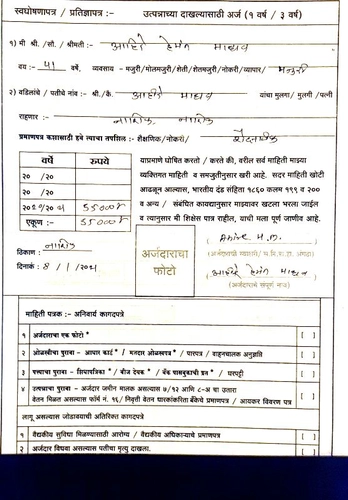 स्वघोषणापत्र / प्रतिज्ञापत्र :- उत्पन्नाच्या दाखल्यासाठी अर्ज (१ वर्ष / ३ वर्ष)
१) मी श्री. /सौ. / श्रीमती :- आहिरे हेमंत माधव
वय :- 41 वर्षे, व्यवसाय - मजुरी/मोलमजुरी/शेती/शेतमजुरी/नोकरी/व्यापार/ मजुरी
२) वडिलांचे / पतीचे नांव :- श्री./कै. आहीरे माधव यांचा मुलगा/ मुलगी /पत्नी
राहणार : नाशिक नाशिक
प्रमाणपत्र कशासाठी हवे त्याचा तपशिल :- शैक्षणिक/नोकरी/ शैक्षणिक
वर्षे रुपये
२० /२०
२० /२०
एकूण :-
याप्रमाणे घोषित करतो / करते की, वरील सर्व माहिती माझ्या
व्यक्तिगत माहिती व समजुतीनुसार खरी आहे. सदर माहिती खोटी
आढळून आल्यास, भारतीय दंड संहिता १८६० कलम १९९ व २००
व अन्य / संबंधित कायद्यानुसार माझ्यावर खटला भरला जाईल
व त्यानुसार मी शिक्षेस पात्र राहील, याची मला पूर्ण जाणीव आहे.
ठिकाण : नाशिक
दिनांक : 8 / 1 / 2021
अर्जदाराचा
फोटो
आहीरे हेमंत माधव
(अर्जदाराचे संपूर्ण नाव)
माहिती पत्रक :- अनिवार्य कागदपत्रे
१ अर्जदाराचा एक फोटो * [ ]
२ ओळखीचा पुरावा - आधार कार्ड * / मतदार ओळखपत्र * / पारपत्र / वाहनचालक अनुज्ञप्ती [ ]
३ पत्त्याचा पुरावा - शिधापत्रिका * / वीज देयक * / बँक पासबुकाची प्रत * / घरपट्टी [ ]
४ उत्पन्नाचा पुरावा - अर्जदार जमीन मालक असल्यास ७/१२ आणि ८-अ चा उतारा
वेतन मिळत असल्यास फॉर्म नं. १६/ निवृत्ती वेतन धारकांकरिता बँकेचे प्रमाणपत्र / आयकर विवरण पत्र [ ]
लागू असल्यास जोडावयाची अतिरिक्त कागदपत्रे
१ वैद्यकीय सुविधा मिळण्यासाठी आरोग्य / वैद्यकीय अधिकाऱ्याचे प्रमाणपत्र [ ]
२ अर्जदार विधवा असल्यास पतीचा मृत्यु दाखला. [ ]